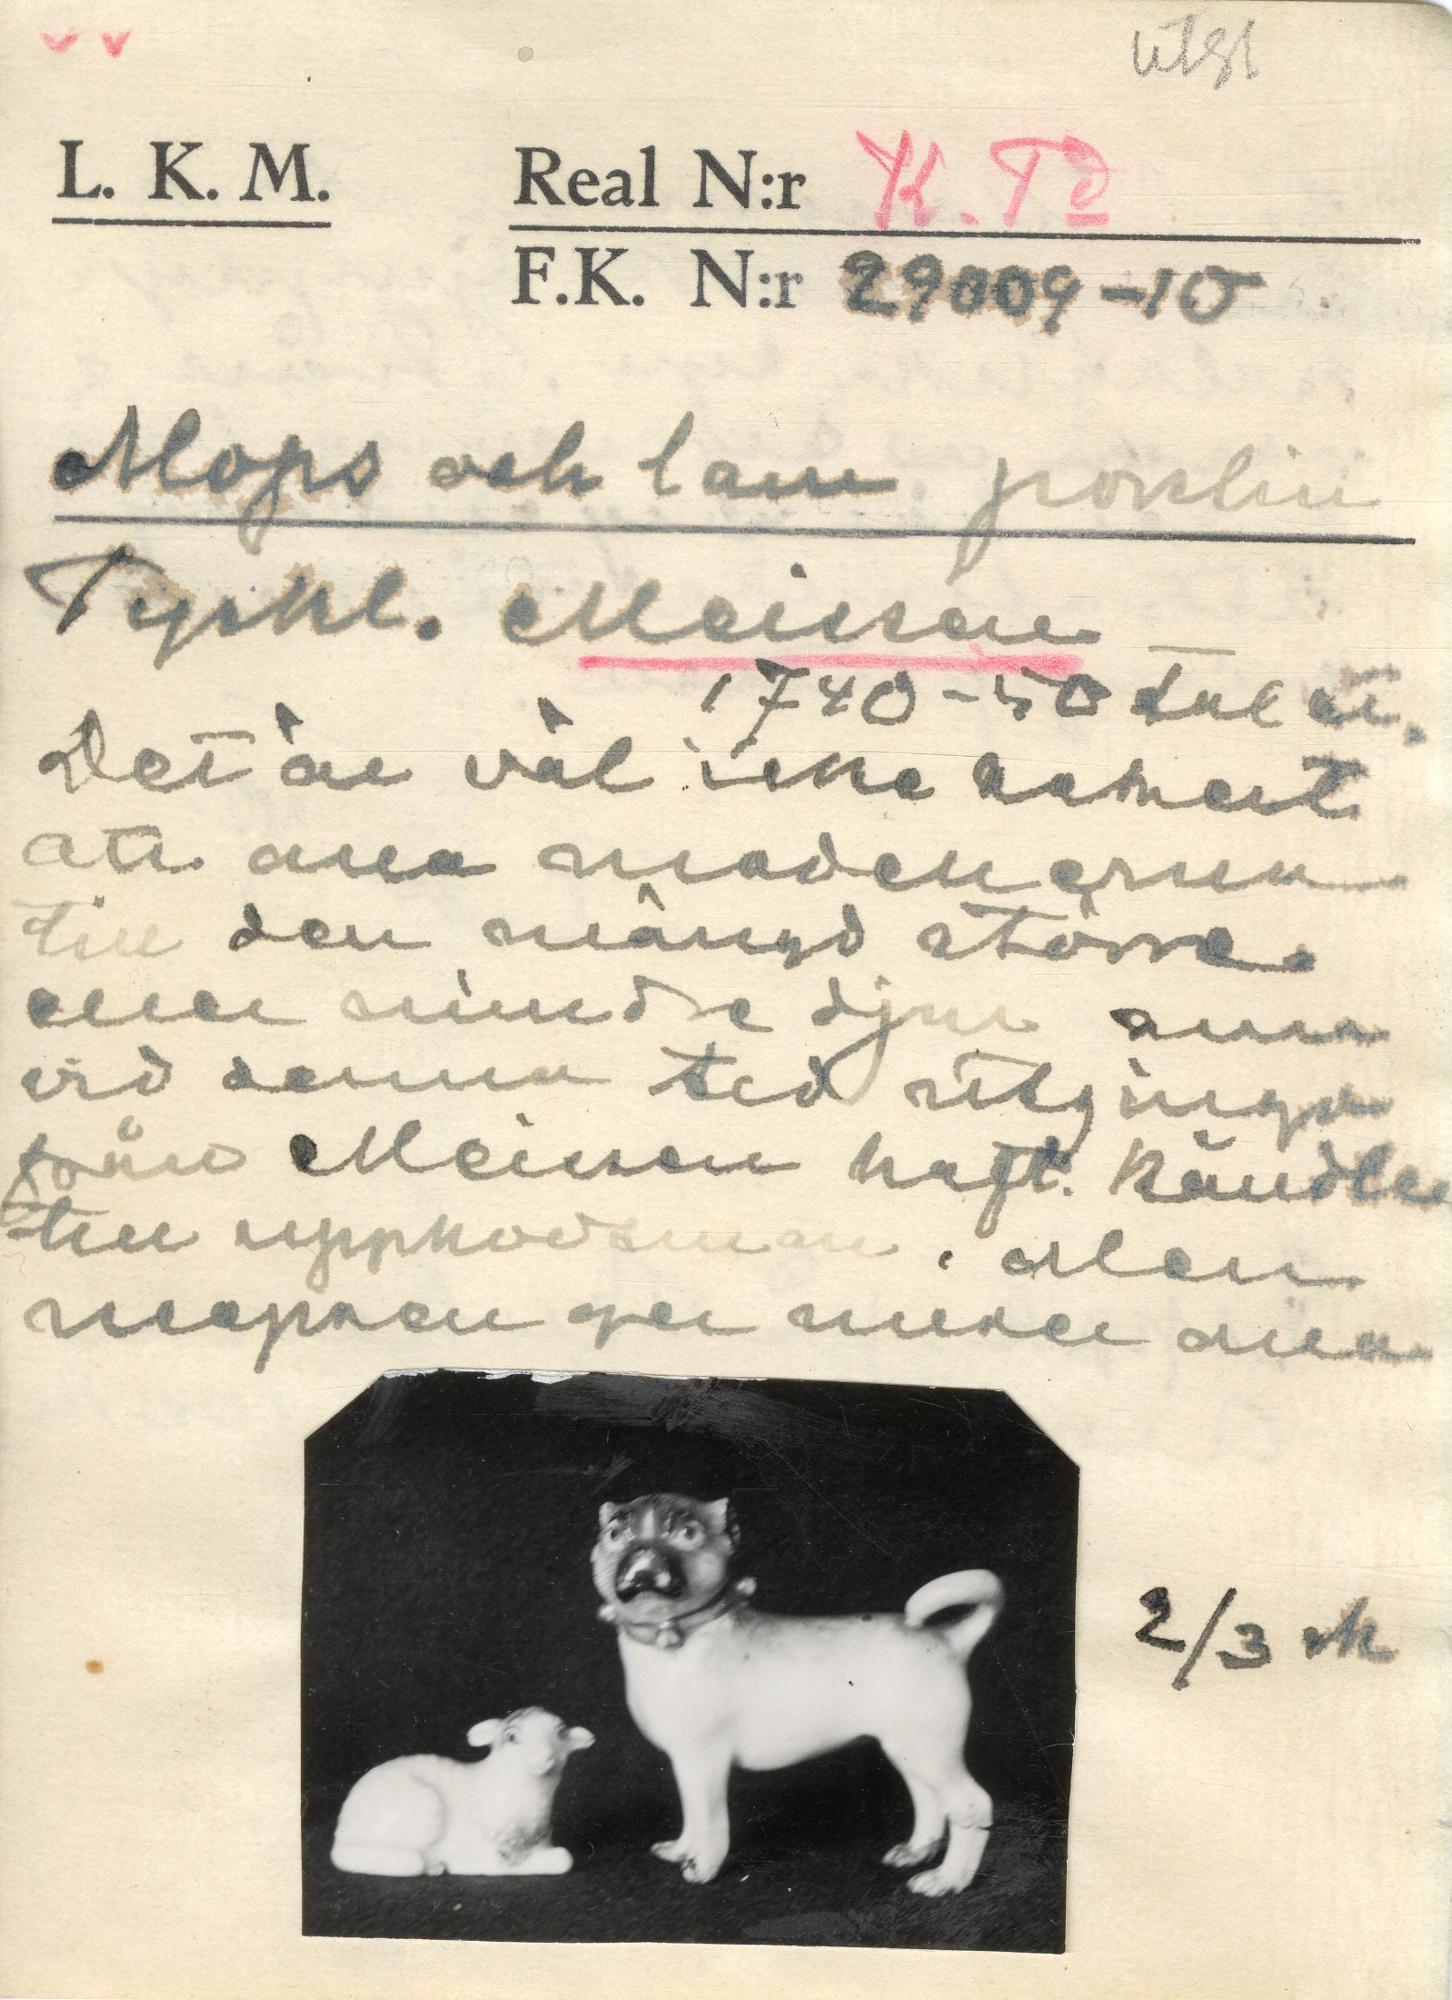 utgl
L. K. M. Real N:r K. Td
F.K. N:r 29009-10
Mops och lam porslin
Tyskl. Meissen
1740-50 talet.
Det är väl icke bekant
att alla modellerna
till den mängd större
eller mindre djur som
vid denna tid utgingo
från Meissen haft Kändler
till upphovsman. Men
mopsen ger nuser alla
2/3 st